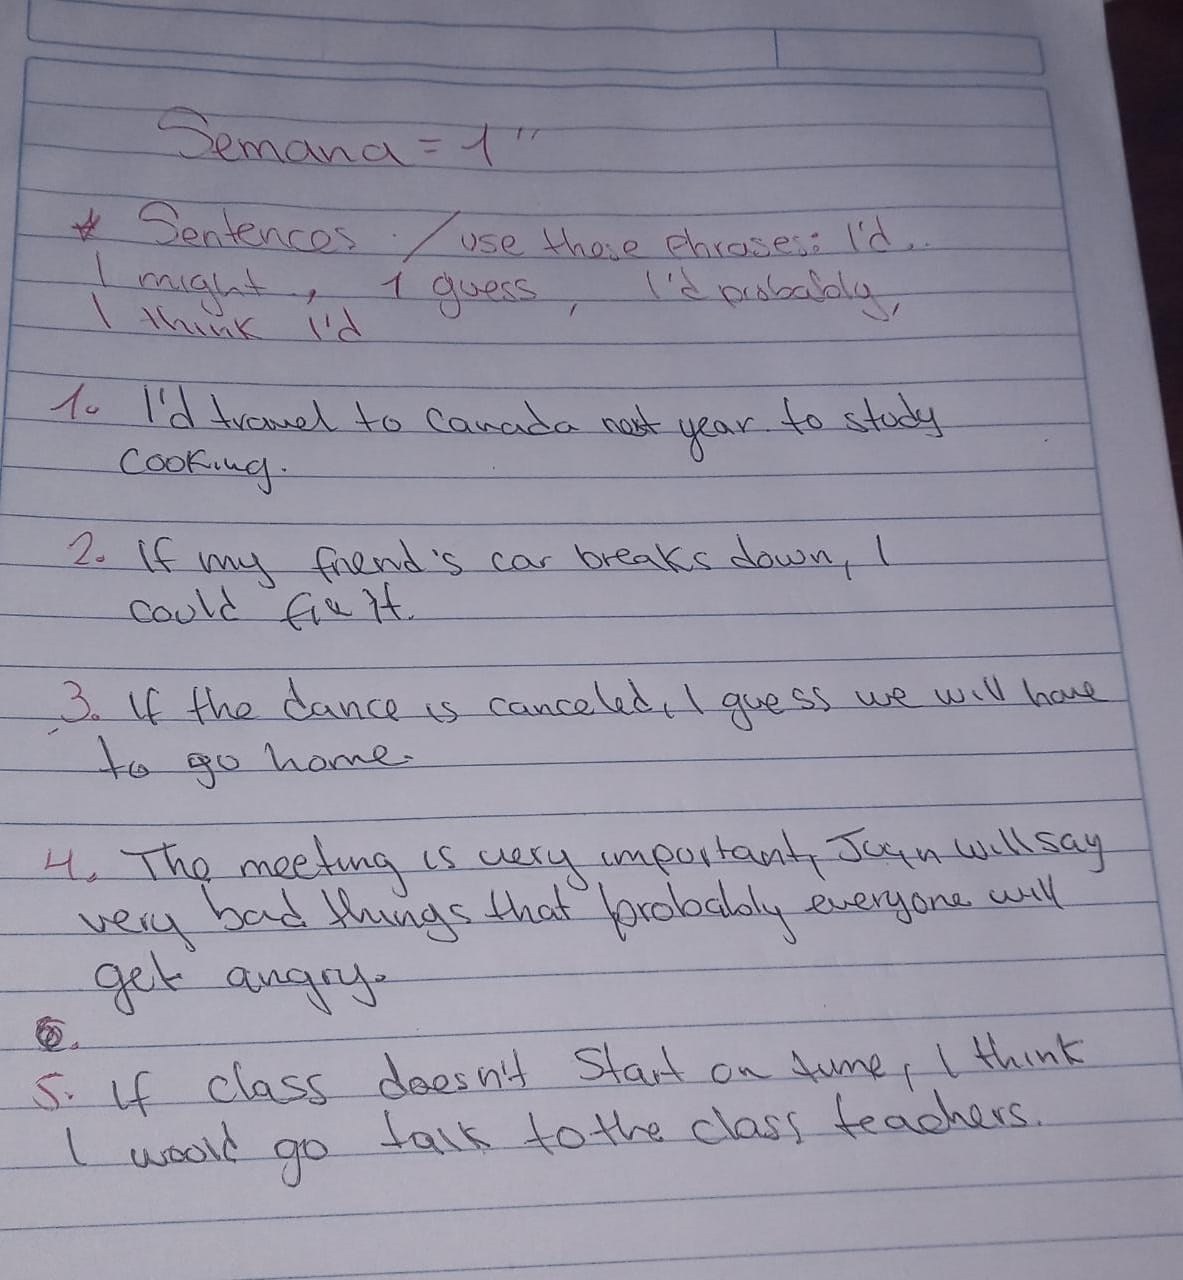 Semana = 1"
* Sentences. / use these phrases: I'd..
I might, I guess, I'd probably,
I think I'd
1. I'd travel to Canada next year to study
cooking.
2. If my friend's car breaks down, I
could fix it.
3. If the dance is canceled, I guess we will have
to go home.
4. The meeting is very important, will say
very bad things that probably everyone will
get angry.
5. If class doesn't start on time, I think
I would go talk to the class teachers.